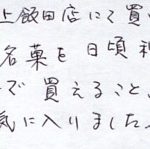 上飯田店にて買
名菓を日頃
で買えること
気に入りました